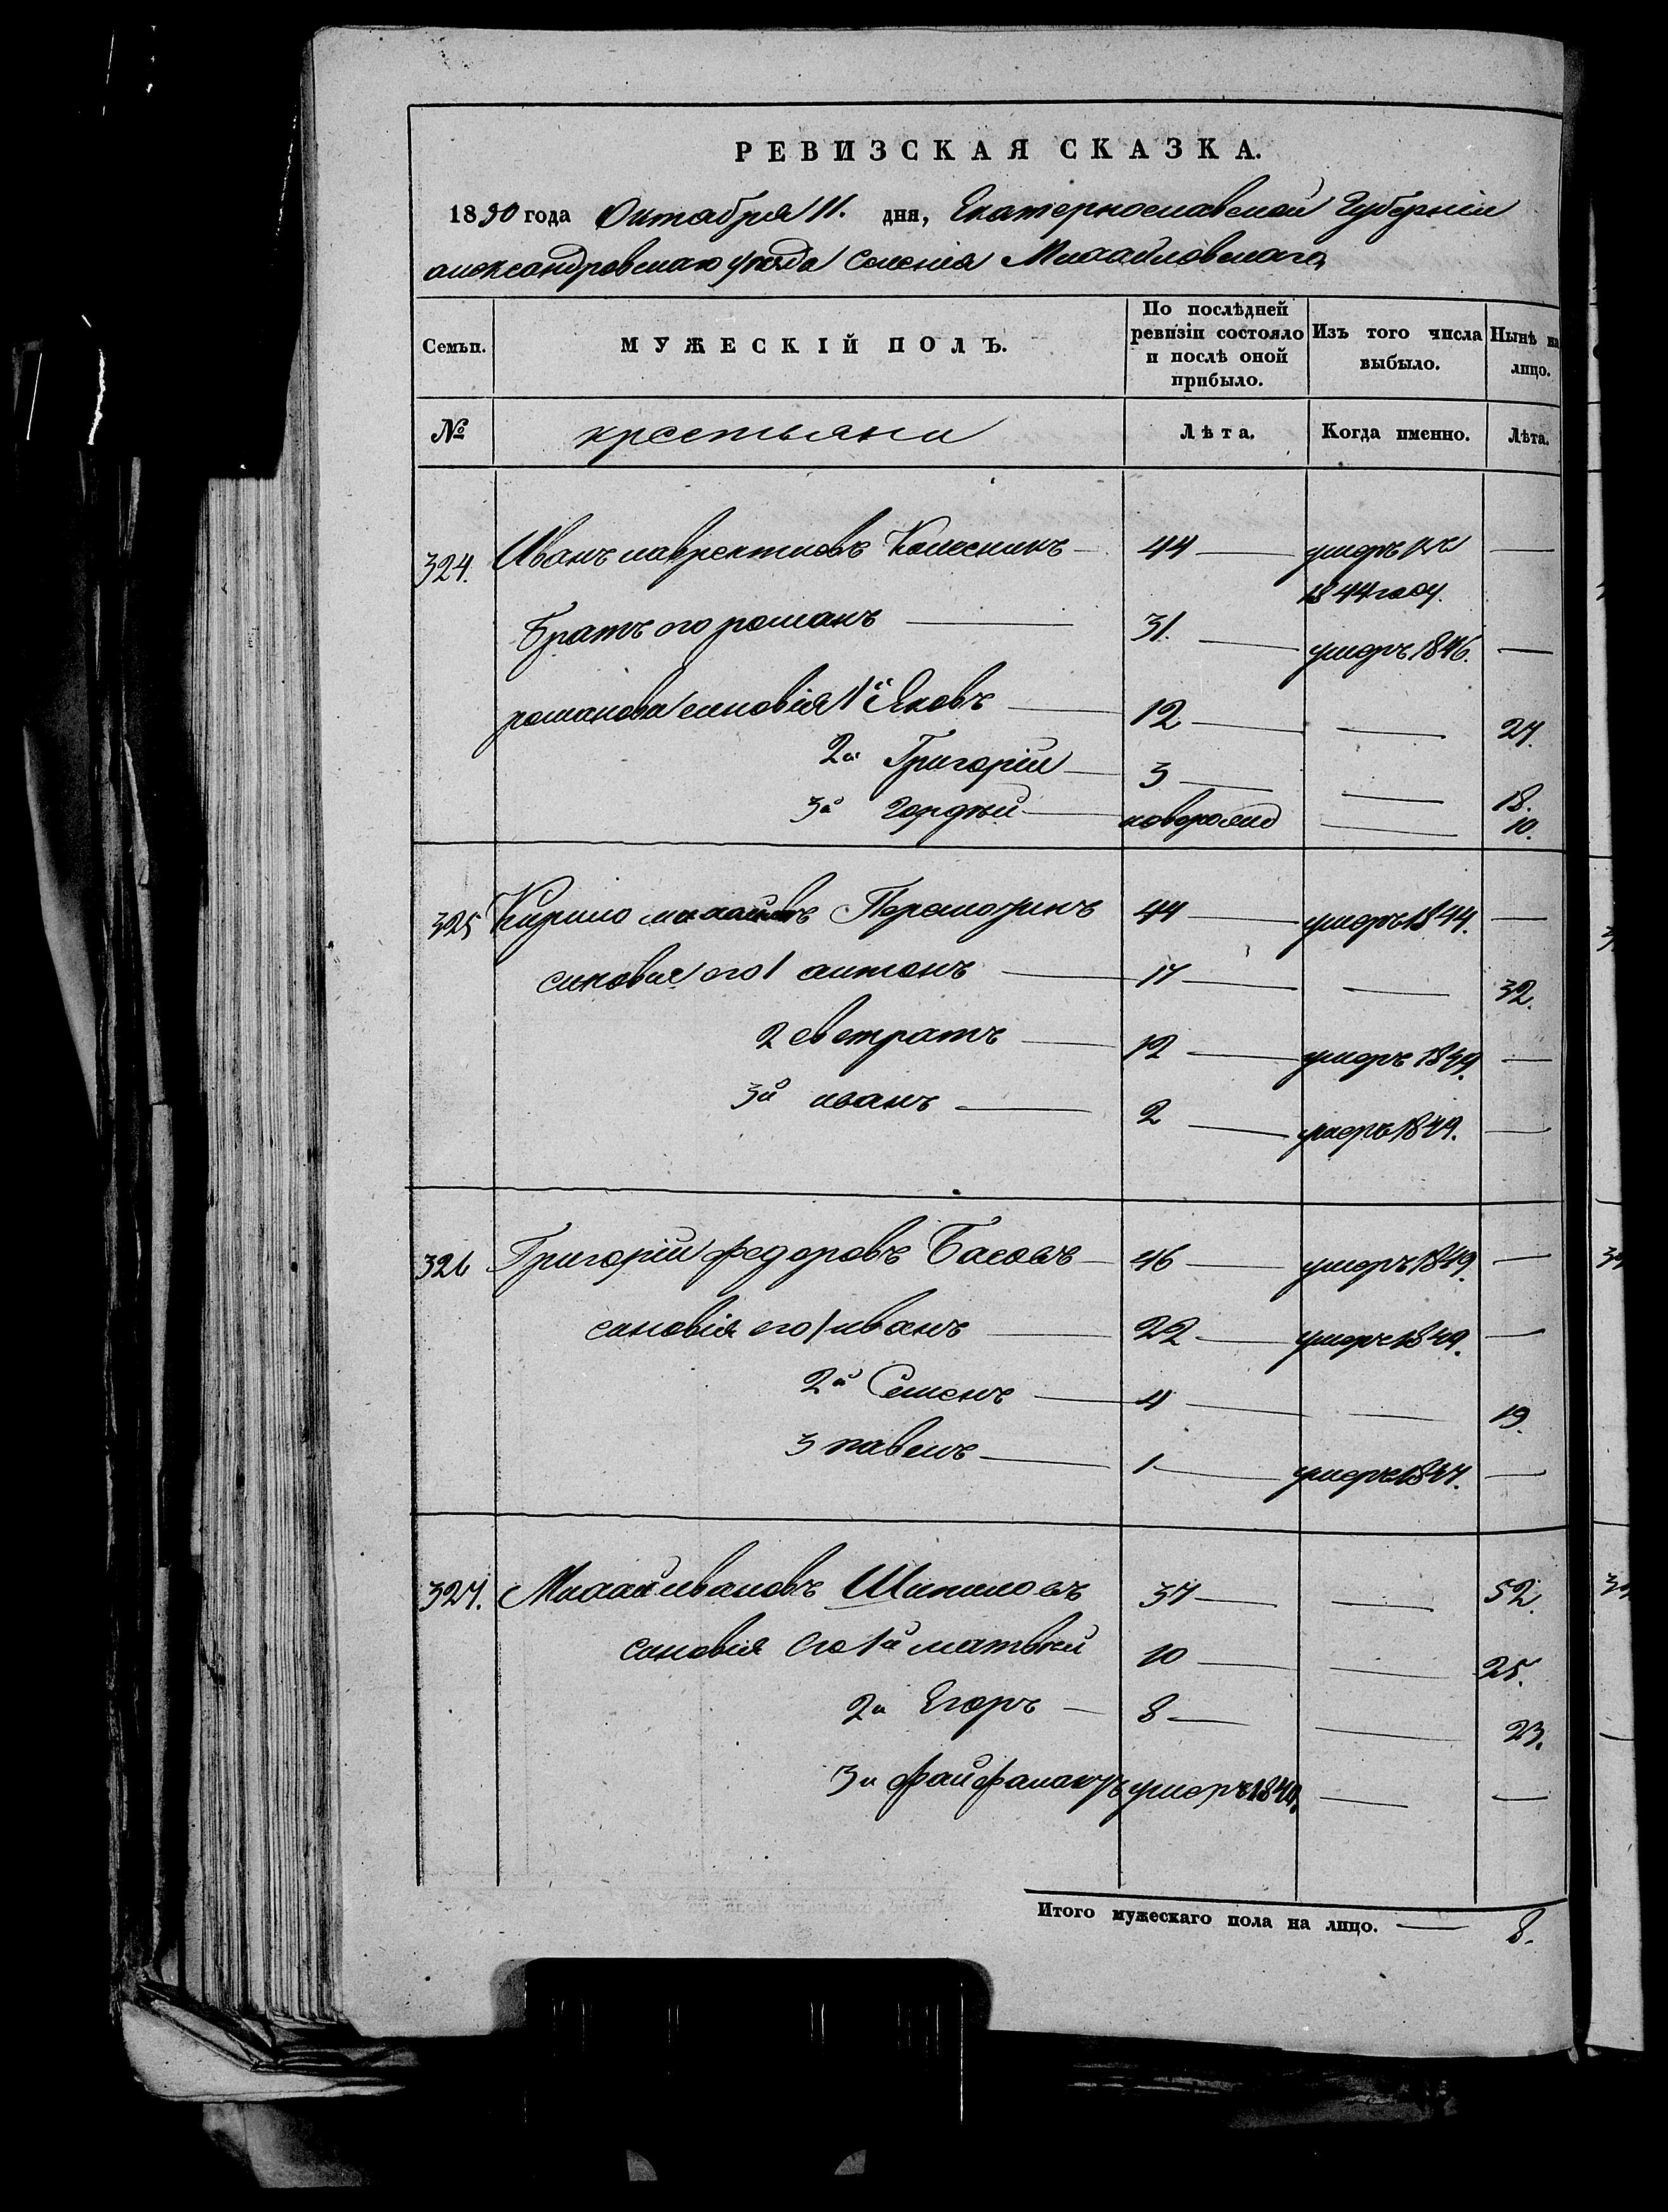 РЕВИЗСКАЯ СКАЗКА.
1850 года Октабря 11. дня, Екатернославской Губернiи
александровскаго уезда Селенiя Михайловскаго
Семьи. МУЖЕСКIЙ ПОЛЪ. По послѣдней ревизiи состояло и послѣ оной прибыло. Изъ того числа выбыло. Нынѣ на лицо.
№ крестьяни Лѣта. Когда именно. Лѣта.
324. Иванъ лаврентиовъ Колесникъ 44 умеръ въ
1844 году.
Братъ его романъ 31. умеръ 1846.
романова синовiя 1й Яковъ 12 27.
2й Григорiи 3 18.
3й Гордѣй новорожд 10.
325 Кирило 44 умеръ 1844.
синовия его 1 антонъ 17 32.
2 евстратъ 12 умеръ 1844.
3й иванъ 2 умеръ 1849.
326 Григорiи федоровъ Басовъ 46 умеръ 1849.
синовiя его 1 иванъ 22 умеръ 1849.
2й Семенъ 4 19.
3 павелъ 1 умеръ 1837.
327. Михаил ивановъ Шипиловъ 37 52.
синовiя его 1й матвѣй 10 25.
2й Егоръ 8 23.
3й умеръ 1849.
Итого мужескаго пола на лицо. 8.